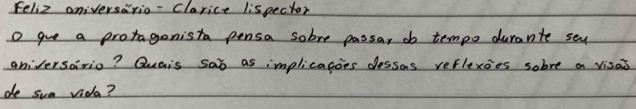 Feliz aniversário - Clarice lispector
o que a protagonista pensa sobre passar do tempo durante seu
aniversário? Quais são as implicações dessas reflexões sobre a visão
de sua vida?